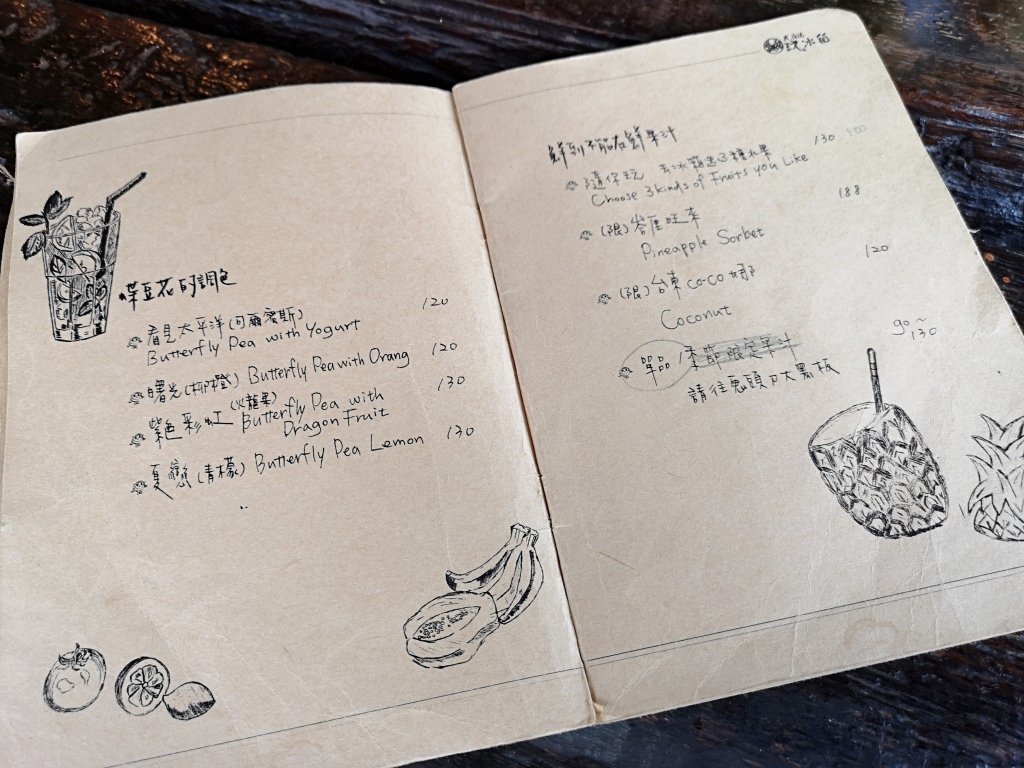 蝶豆花的調色
看見太平洋(可爾必斯) 120
Butterfly Pea with Yogurt
曙光(柳橙) Butterfly Pea with Orang 120
紫色彩虹(火龍果) Butterfly Pea with 130
Dragon Fruit
夏戀(青檬) Butterfly Pea Lemon 130
鮮到不能在鮮果汁
隨你玩 去冰箱選3種水果 130
Choose 3 kinds of Fruits you Like
(限) 旺來 188
Pineapple Sorbet
(限) 台東co-co 120
Coconut
單品 季節限定果汁 90~130
請往 頭 大黑板